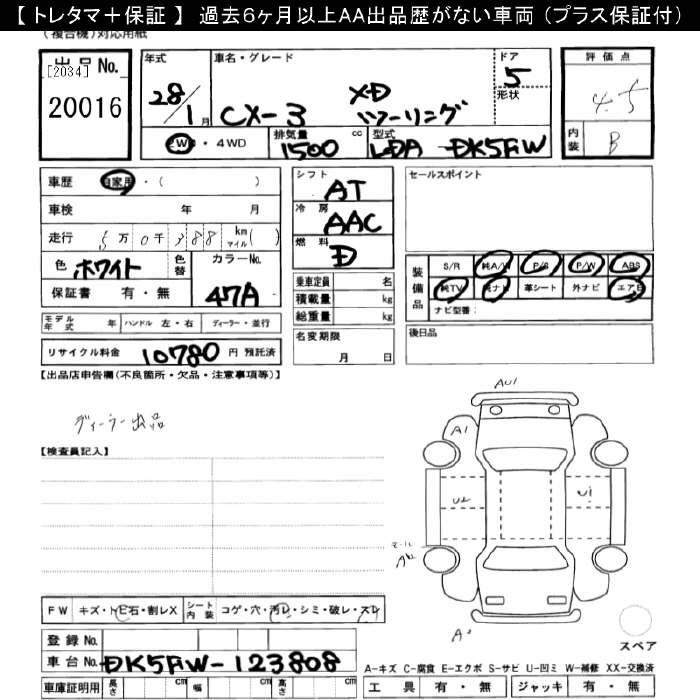 【 トレタマ＋保証 】 過去６ヶ月以上ＡＡ出品歴がない車両（プラス保証付）
（複合機）対応用紙
出品 No.
[2034]
20016
年式 28/1月
車名・グレード CX-3 XD ツーリング
ドア 5
形状
評価点 4.5
内装 B
2WD ・ 4WD
排気量 1500 cc
型式 LDA-DK5FW
車歴 自家用・（ ）
車検 年 月
走行 5万0千388 km マイル（ ）
色 ホワイト 色替 カラーNo. 47A
保証書 有・無
モデル年式 年 ハンドル 左・右 ディーラー・並行
リサイクル料金 10780 円 預託済
シフト AT
冷房 AAC
燃料 D
乗車定員 名
積載量 kg
総重量 kg
名変期限 月 日
セールスポイント
装備品 S/R 純A/W P/S P/W ABS
純TV 純ナビ 革シート 外ナビ エアB
ナビ型番：
後日品
【出品店申告欄（不良箇所・欠品・注意事項等）】
ディーラー出品
【検査員記入】
AU1
A1
U2
U1
モール
A2
FW キズ・トビ石・割レX シート内装 コゲ・穴・汚レ・シミ・破レ・スレ
登録 No.
車台 No. DK5FW-123808
車庫証明用 長さ cm 幅 cm 高さ cm
スペア
A-キズ C-腐食 E-エクボ S-サビ U-凹ミ W-補修 XX-交換済
工具 有・無 ジャッキ 有・無